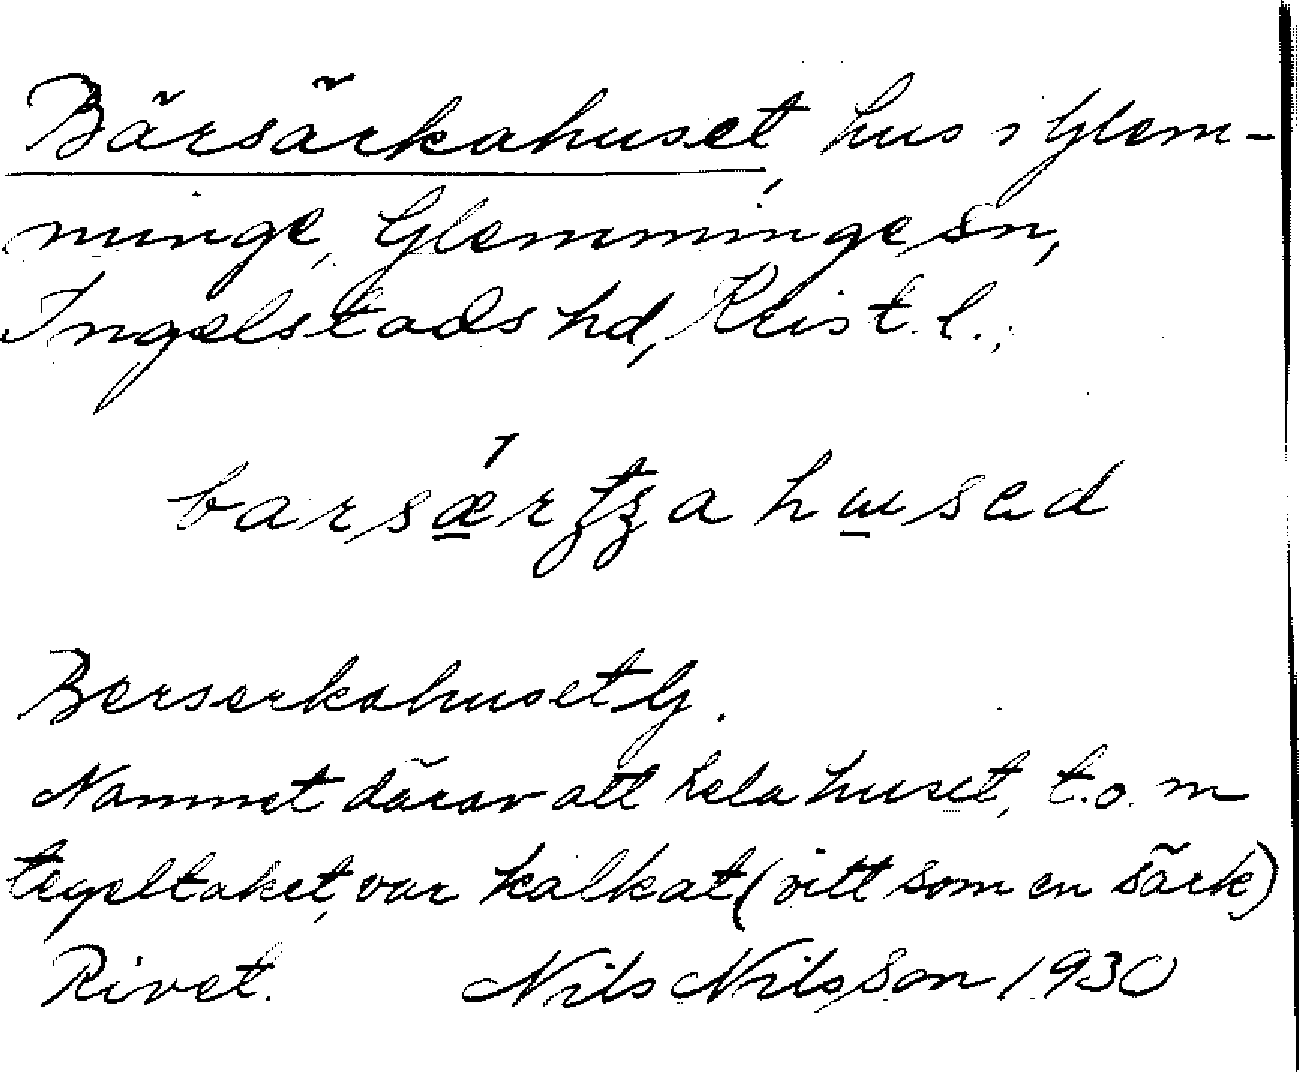 Bärsärkahuset, hus i Glem-
minge, Glemminge sn,
Ingelstads hd, Krist. l.;
barsǽrꞔꞔa husad
Berserkahuset Gj.
Namnet därav att hela huset, t.o.m
tegeltaket, var kalkat (vitt som en särk)
Rivet. Nils Nilsson 1930